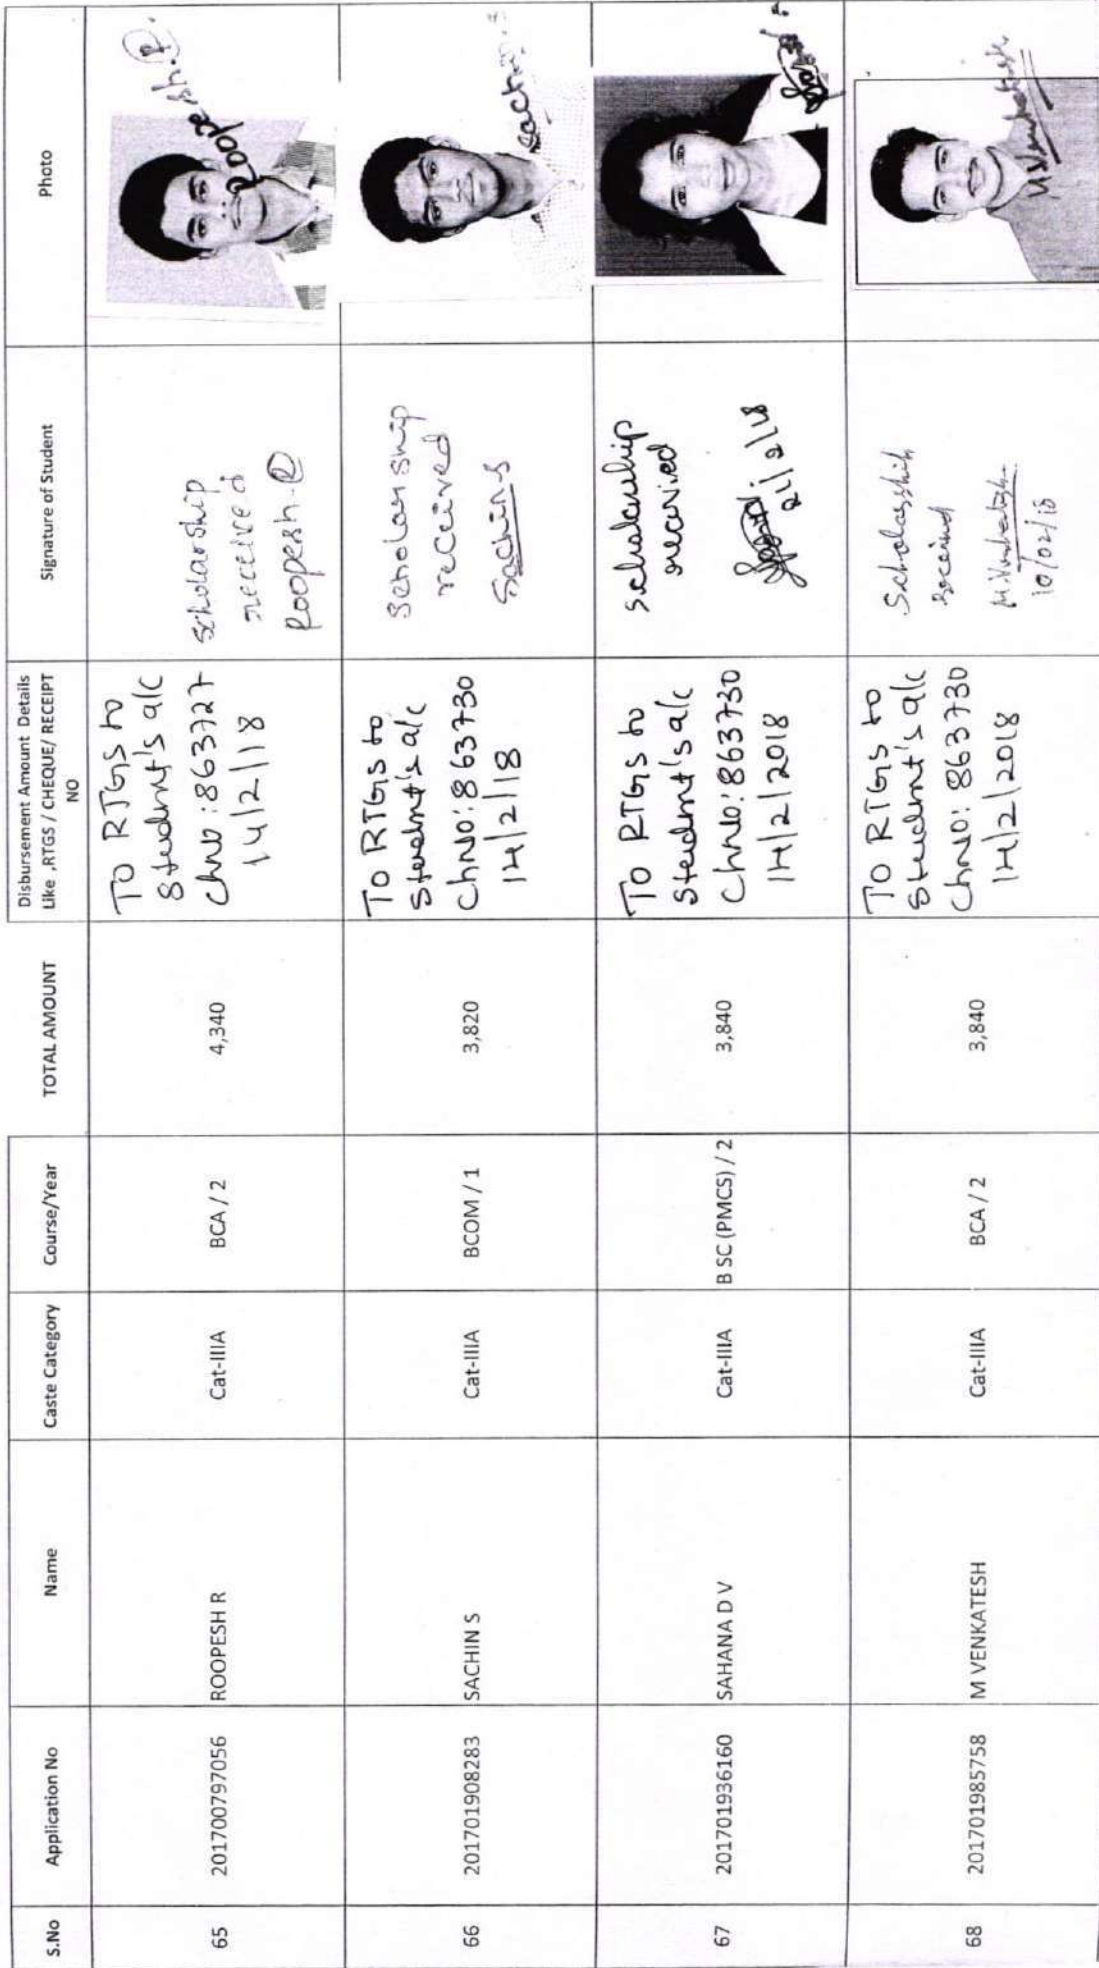 S.No Application No Name Caste Category Course/Year TOTAL AMOUNT Disbursement Amount Details Like ,RTGS / CHEQUE/ RECEIPT NO Signature of Student Photo
65 201700797056 ROOPESH R Cat-IIIA BCA / 2 4,340
TO RTGS to
Student's a/c
Chno : 863727
14/2/18
Scholarship
received
Roopesh.R
Roopesh.R
66 201701908283 SACHIN S Cat-IIIA BCOM / 1 3,820
TO RTGS to
Student's a/c
ChNO: 863730
14/2/18
Scholarship
received
Sachin S
Sachin.S
67 201701936160 SAHANA D V Cat-IIIA B SC (PMCS) / 2 3,840
TO RTGS to
Student's a/c
ChNO: 863730
14/2/2018
scholarship
received
21/2/18
68 201701985758 M VENKATESH Cat-IIIA BCA / 2 3,840
TO RTGS to
Student's a/c
ChNO: 863730
14/2/2018
Scholarship
Received
M.Venkatesh
10/02/18
M.Venkatesh